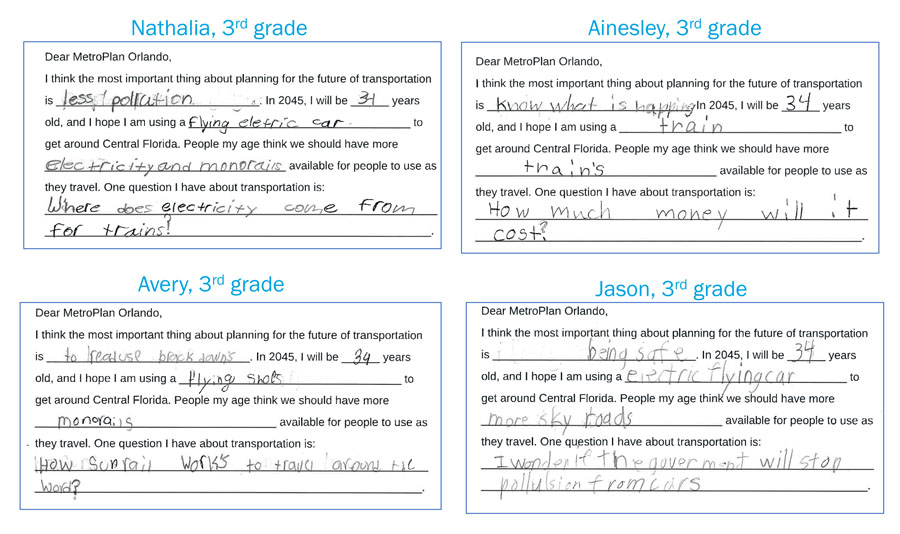 Nathalia, 3rd grade
Dear MetroPlan Orlando,
I think the most important thing about planning for the future of transportation
is less pollution. In 2045, I will be 31 years
old, and I hope I am using a flying eletric car. to
get around Central Florida. People my age think we should have more
electricity and monorails available for people to use as
they travel. One question I have about transportation is:
Where does electricity come from
for trains?
Ainesley, 3rd grade
Dear MetroPlan Orlando,
I think the most important thing about planning for the future of transportation
is know what is happing In 2045, I will be 34 years
old, and I hope I am using a train to
get around Central Florida. People my age think we should have more
train's available for people to use as
they travel. One question I have about transportation is:
How much money will it
cost?
Avery, 3rd grade
Dear MetroPlan Orlando,
I think the most important thing about planning for the future of transportation
is to break downs. In 2045, I will be 34 years
old, and I hope I am using a flying shoes to
get around Central Florida. People my age think we should have more
monorails available for people to use as
they travel. One question I have about transportation is:
How Sunrail works to travel around the
word?
Jason, 3rd grade
Dear MetroPlan Orlando,
I think the most important thing about planning for the future of transportation
is being safe. In 2045, I will be 34 years
old, and I hope I am using a electric flying car to
get around Central Florida. People my age think we should have more
more sky roads available for people to use as
they travel. One question I have about transportation is:
I wonder if the goverment will stop
pollulsion from cars